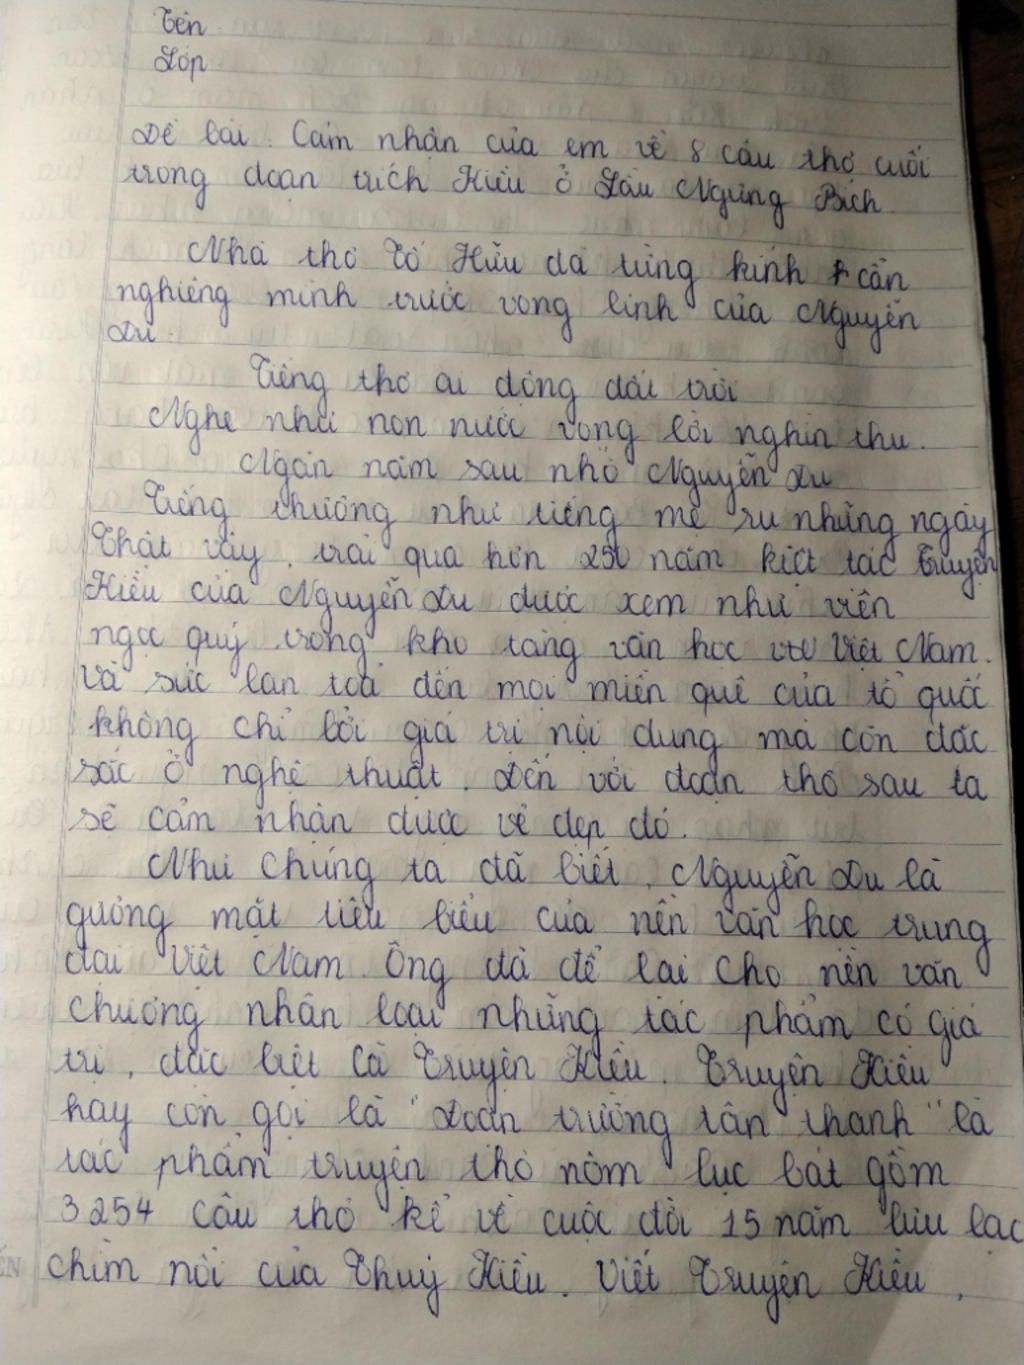 Tên
Lớp
Đề bài : Cảm nhận của em về 8 câu thơ cuối
trong đoạn trích Kiều ở Lầu Ngưng Bích
Nhà thơ Tố Hữu đã từng kính cẩn
nghiêng mình trước vong linh của Nguyễn
Du.
Tiếng thơ ai động đất trời
Nghe như non nước vọng lời nghìn thu.
Ngàn năm sau nhớ Nguyễn Du
Tiếng thương như tiếng mẹ ru những ngày
Thật vậy, trải qua hơn 250 năm kiệt tác Truyện
Kiều của Nguyễn Du được xem như viên
ngọc quý trong kho tàng văn học Việt Nam.
Và sức lan toả đến mọi miền quê của tổ quốc
không chỉ bởi giá trị nội dung mà còn đặc
sắc ở nghệ thuật. Đến với đoạn thơ sau ta
sẽ cảm nhận được vẻ đẹp đó.
Như chúng ta đã biết, Nguyễn Du là
gương mặt tiêu biểu của nền văn học trung
đại Việt Nam. Ông đã để lại cho nền văn
chương nhân loại những tác phẩm có giá
trị, đặc biệt là Truyện Kiều. Truyện Kiều
hay còn gọi là "Đoạn trường tân thanh" là
tác phẩm truyện thơ nôm lục bát gồm
3254 câu thơ kể về cuộc đời 15 năm lưu lạc
chìm nổi của Thuý Kiều. Viết Truyện Kiều,